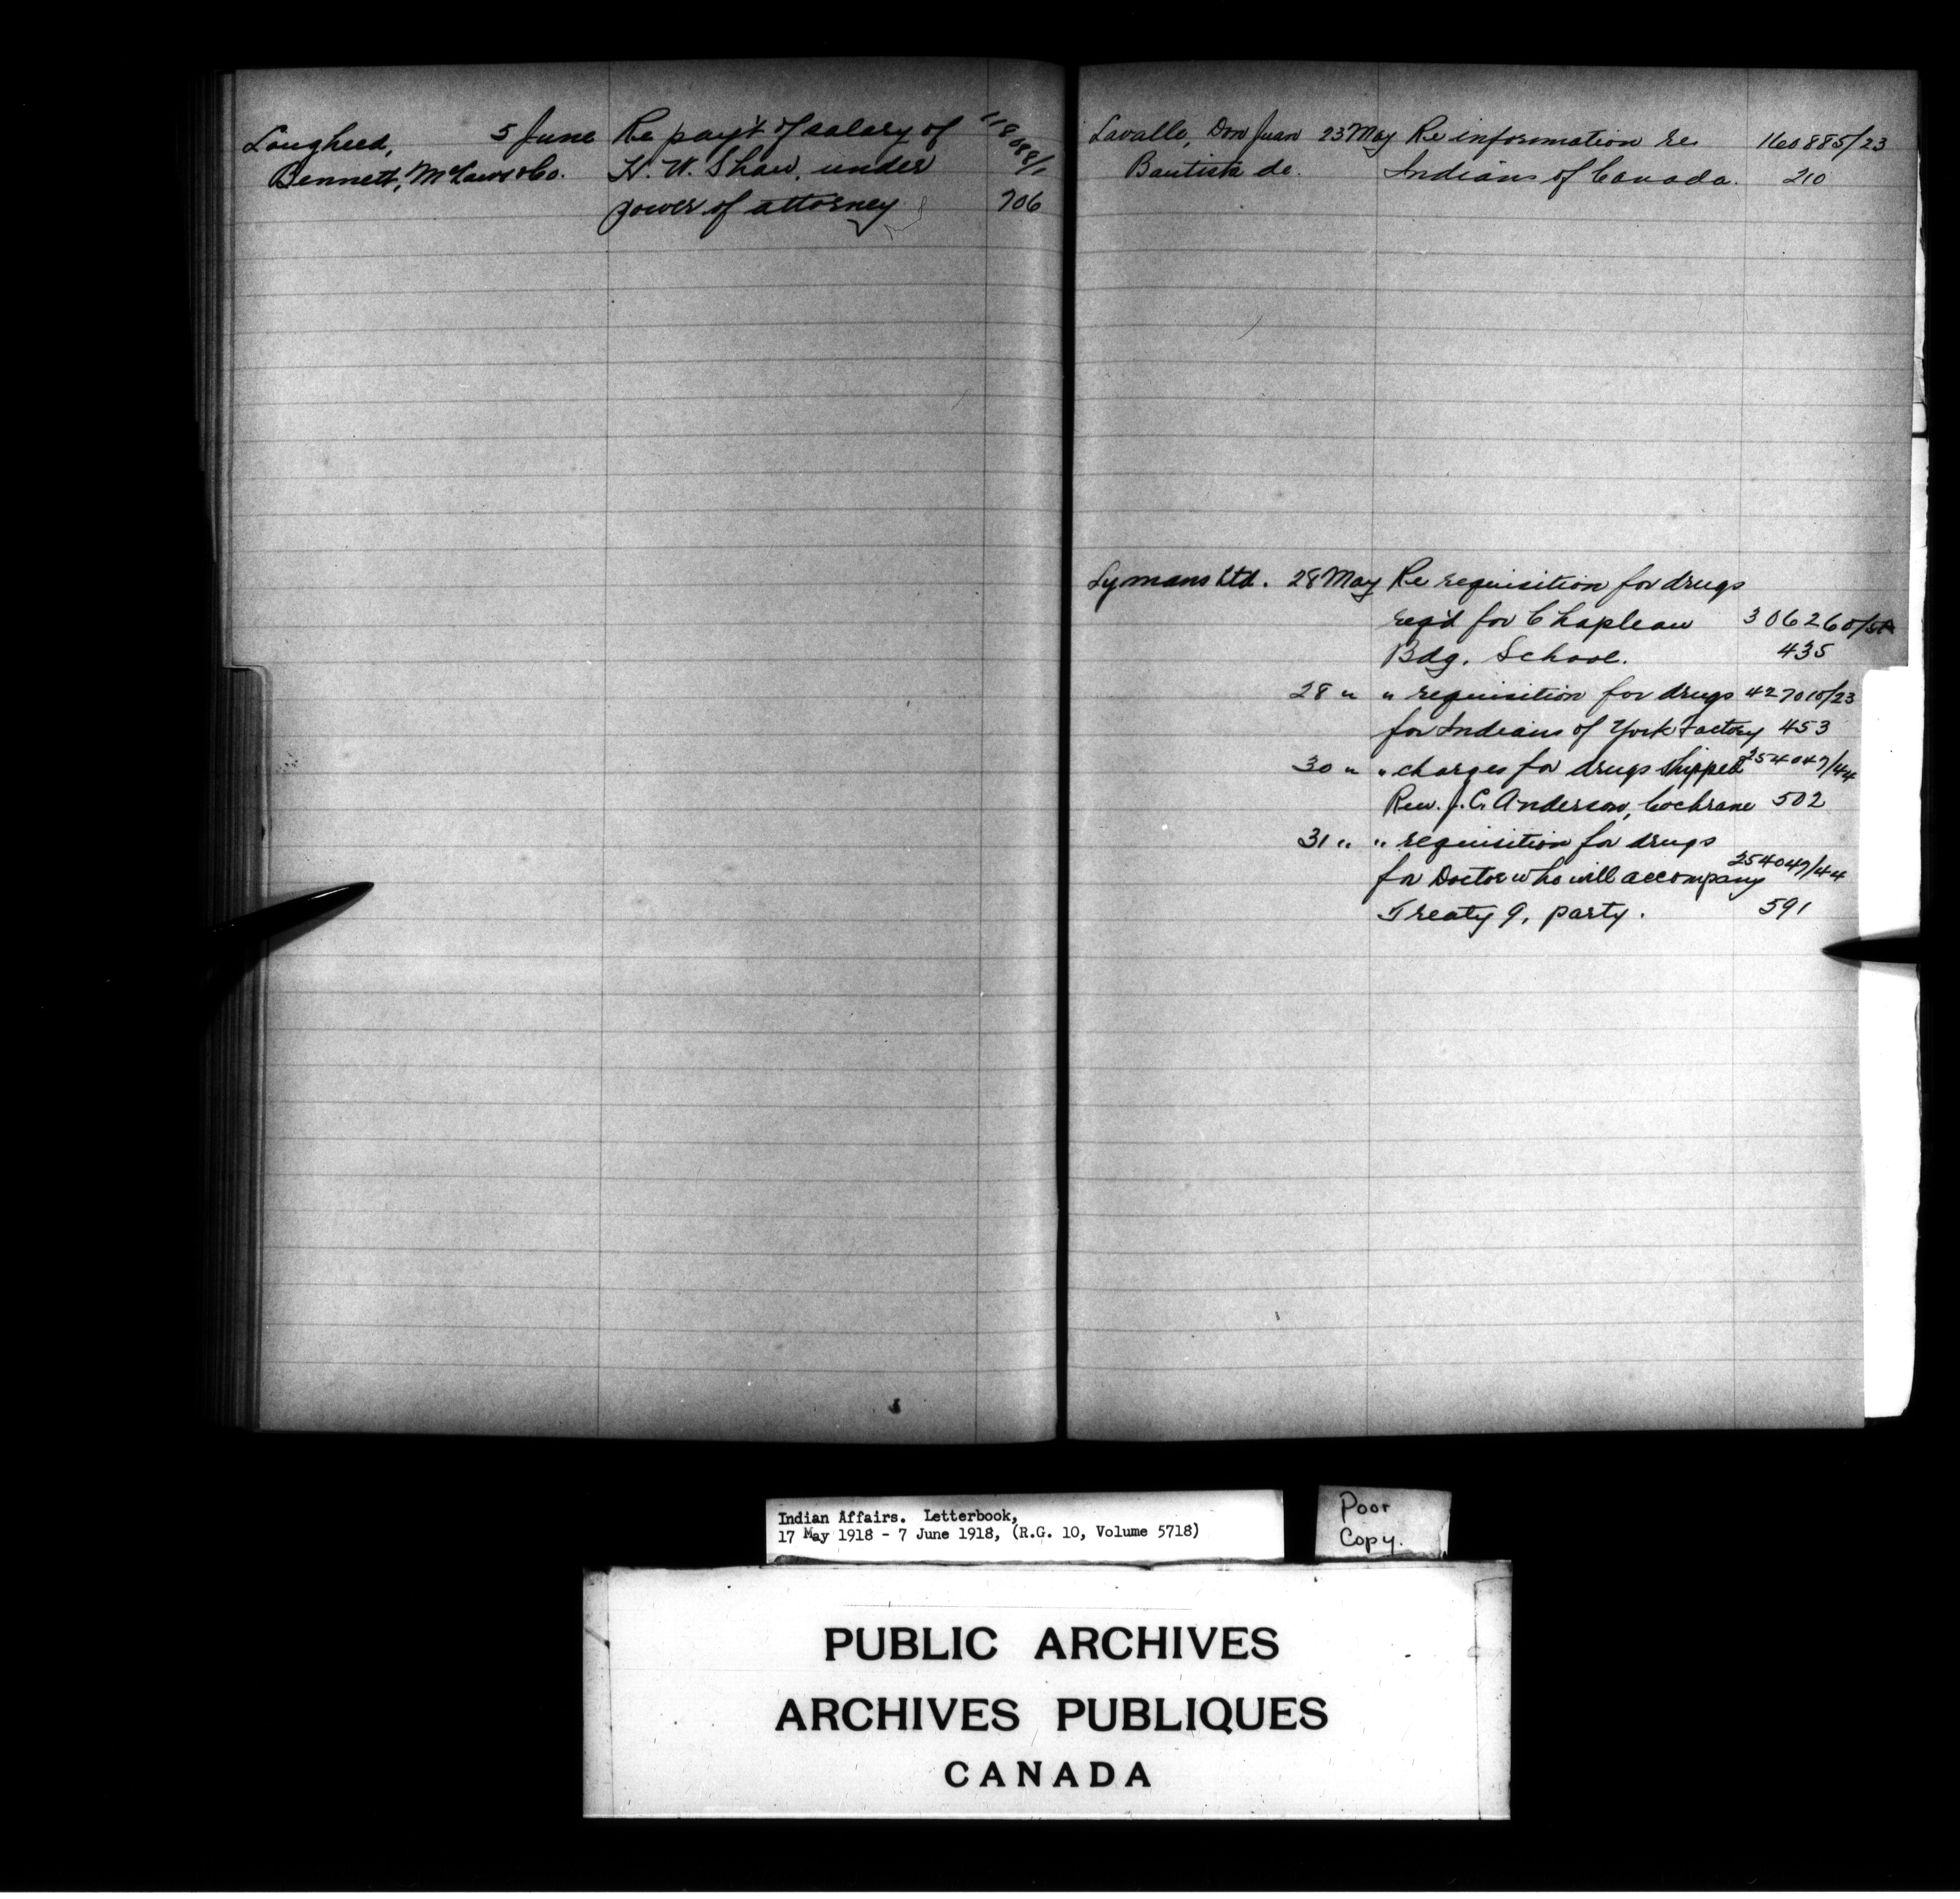 Lougheed, 5 June Re pay't of salary of 118088/1
Bennett, McLaws & Co. H. W. Shaw, under
power of attorney 706
Lavalle, Don Juan 23 May Re information re. 160885/23
Bautista de. Indians of Canada. 210
Lymans Ltd. 28 May Re requisition for drugs
req'd for Chapleau 306260/
Bdg. School. 435
28 " " requisition for drugs 427010/23
for Indians of York Factory 453
30 " " charges for drugs shipped 254047/44
Rev. J. C. Anderson, Cochrane 502
31 " " requisition for drugs
for Doctor who will accompany 254047/44
Treaty 9, party. 591
Indian Affairs. Letterbook,
17 May 1918 - 7 June 1918, (R.G. 10, Volume 5718)
Poor
Copy.
PUBLIC ARCHIVES
ARCHIVES PUBLIQUES
CANADA